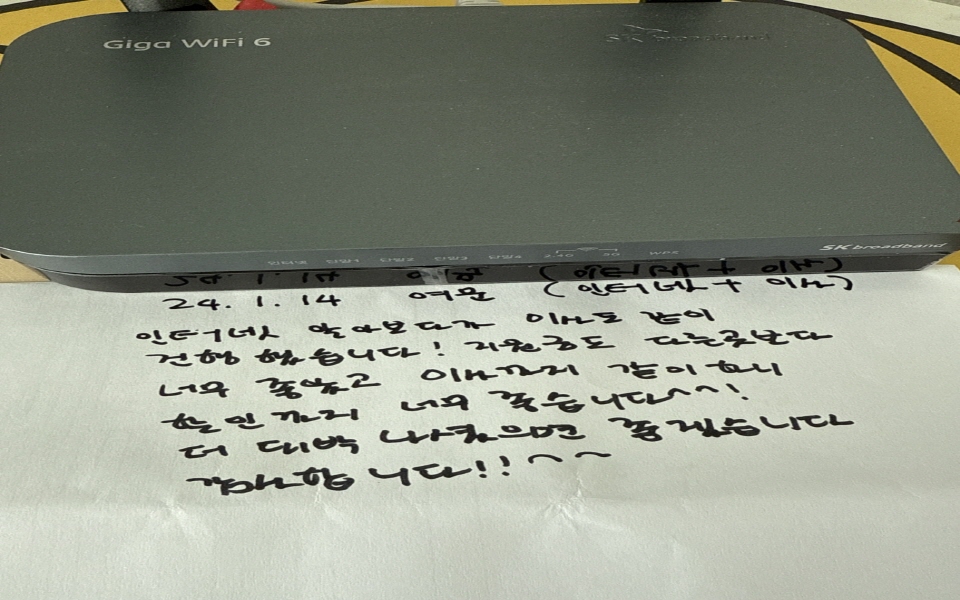 Giga WiFi 6
SK broadband
인터넷 단말1 단말2 단말3 단말4 2.4G 5G WPS
SK broadband
24. 1. 14 여문 (인터넷 + 이사)
인터넷 알아보다가 이사도 같이
진행 했습니다! 지원금도 다른곳보다
너무 좋았고 이사까지 같이 하니
할인까지 너무 좋습니다^^!
더 대박 나셨으면 좋겠습니다
감사합니다!! ~~